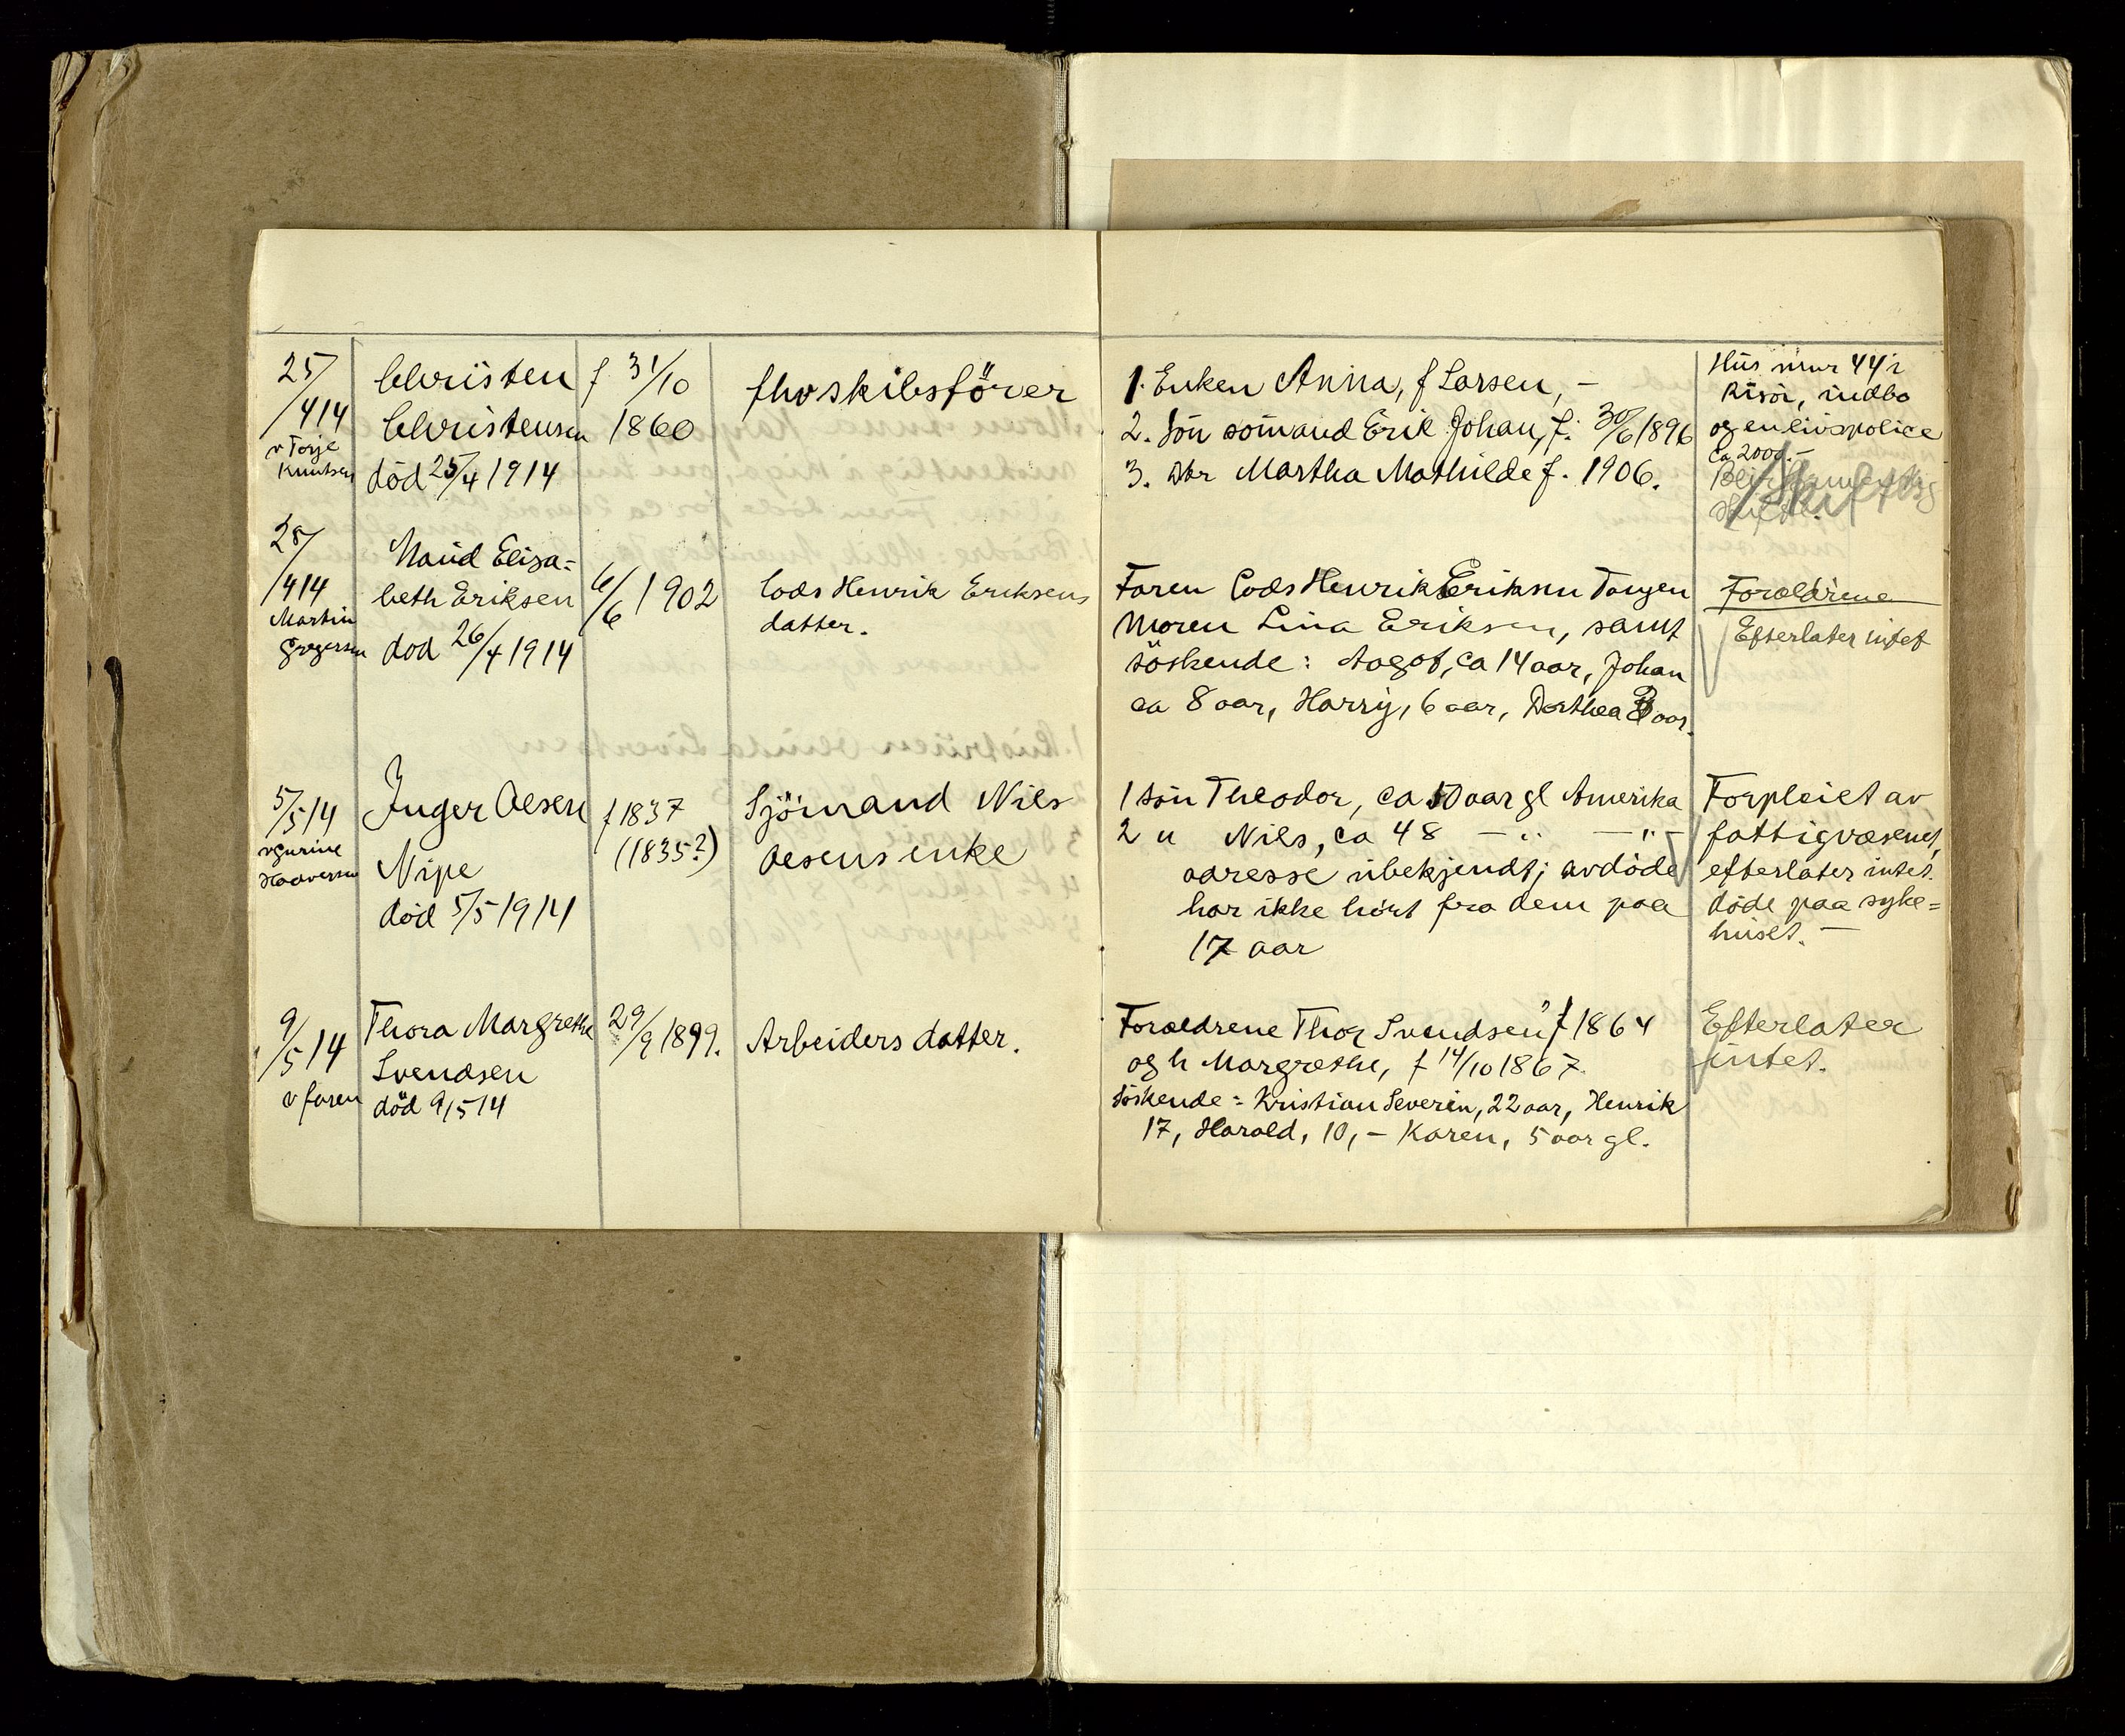 25/
/414
v Torje
Knutsen
Christen
Christensen
död 25/4 1914
f 31/10
1860
fhv skibsförer
1. Enken Anna, f Larsen, -
2. Sön sömand Erik Johan, f. 30/6 1896
3. Dtr Martha Mathilde f. 1906.
Hus nmr 44 i
Risör, indbo
og en livspolice
ca 2000.-
Skiftet
28/
/414
Martin
Gregersen
Maud Elisa=
beth Eriksen
död 26/4 1914
6/6 1902
Lods Henrik Eriksens
datter.
Faren Lods Henrik Eriksen Tangen
Moren Lina Eriksen, samt
söskende: Aagot, ca 14 aar, Johan
ca 8 aar, Harry, 6 aar, Dorthea 3 aar.
Forældrene
Efterlater intet
5/5 14
v Gurine
Haaversen
Inger Olsen
Nipe
död 5/5 1914
f 1837
(1835?)
Sjömand Nils
Olsens enke
1 sön Theodor, ca 50 aar gl Amerika
2 " Nils, ca 48 — " — " —
adresse ubekjendt; avdöde
har ikke hört fra dem paa
17 aar
Forpleiet av
fattigvæsenet,
efterlater intet.
döde paa syke=
huset. —
9/
/5 14
v faren
Thora Margrethe
Svendsen
död 9/5 14
29/9 1899.
Arbeiders datter.
Forældrene Thor Svendsen, f 1864
og h Margrethe, f 14/10 1867.
söskende: Kristian Severin, 22 aar, Henrik
17, Harald, 10, - Karen, 5 aar gl.
Efterlater
intet.